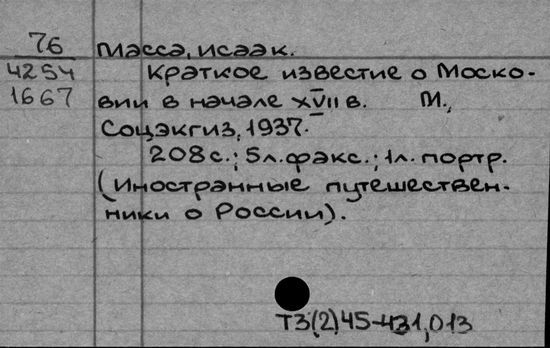 76 Масса, Исаак.
4254 Краткое известие о Моско-
1667 вии в начале XVII в. М.,
Соцэкгиз, 1937.
208 с.; 5 л. факс.; 1 л. портр.
(Иностранные путешествен-
ники о России).
Т3(2)45-431,013